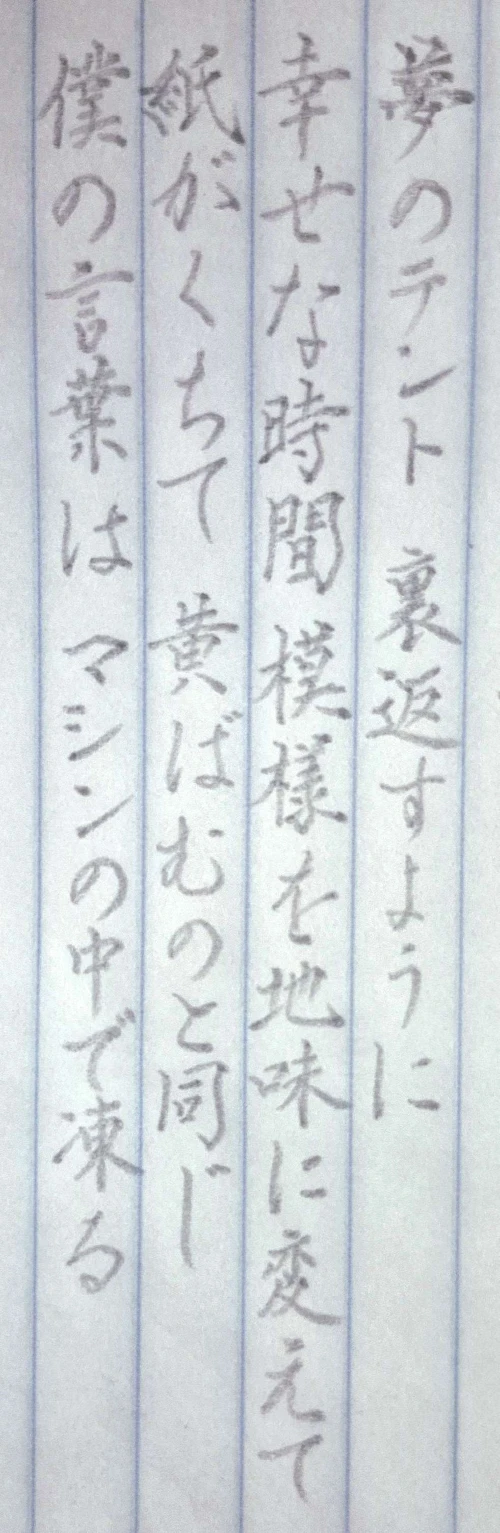 夢のテント 裏返すように
幸せな時間模様を地味に変えて
紙がくちて 黄ばむのと同じ
僕の言葉は マシンの中で凍る